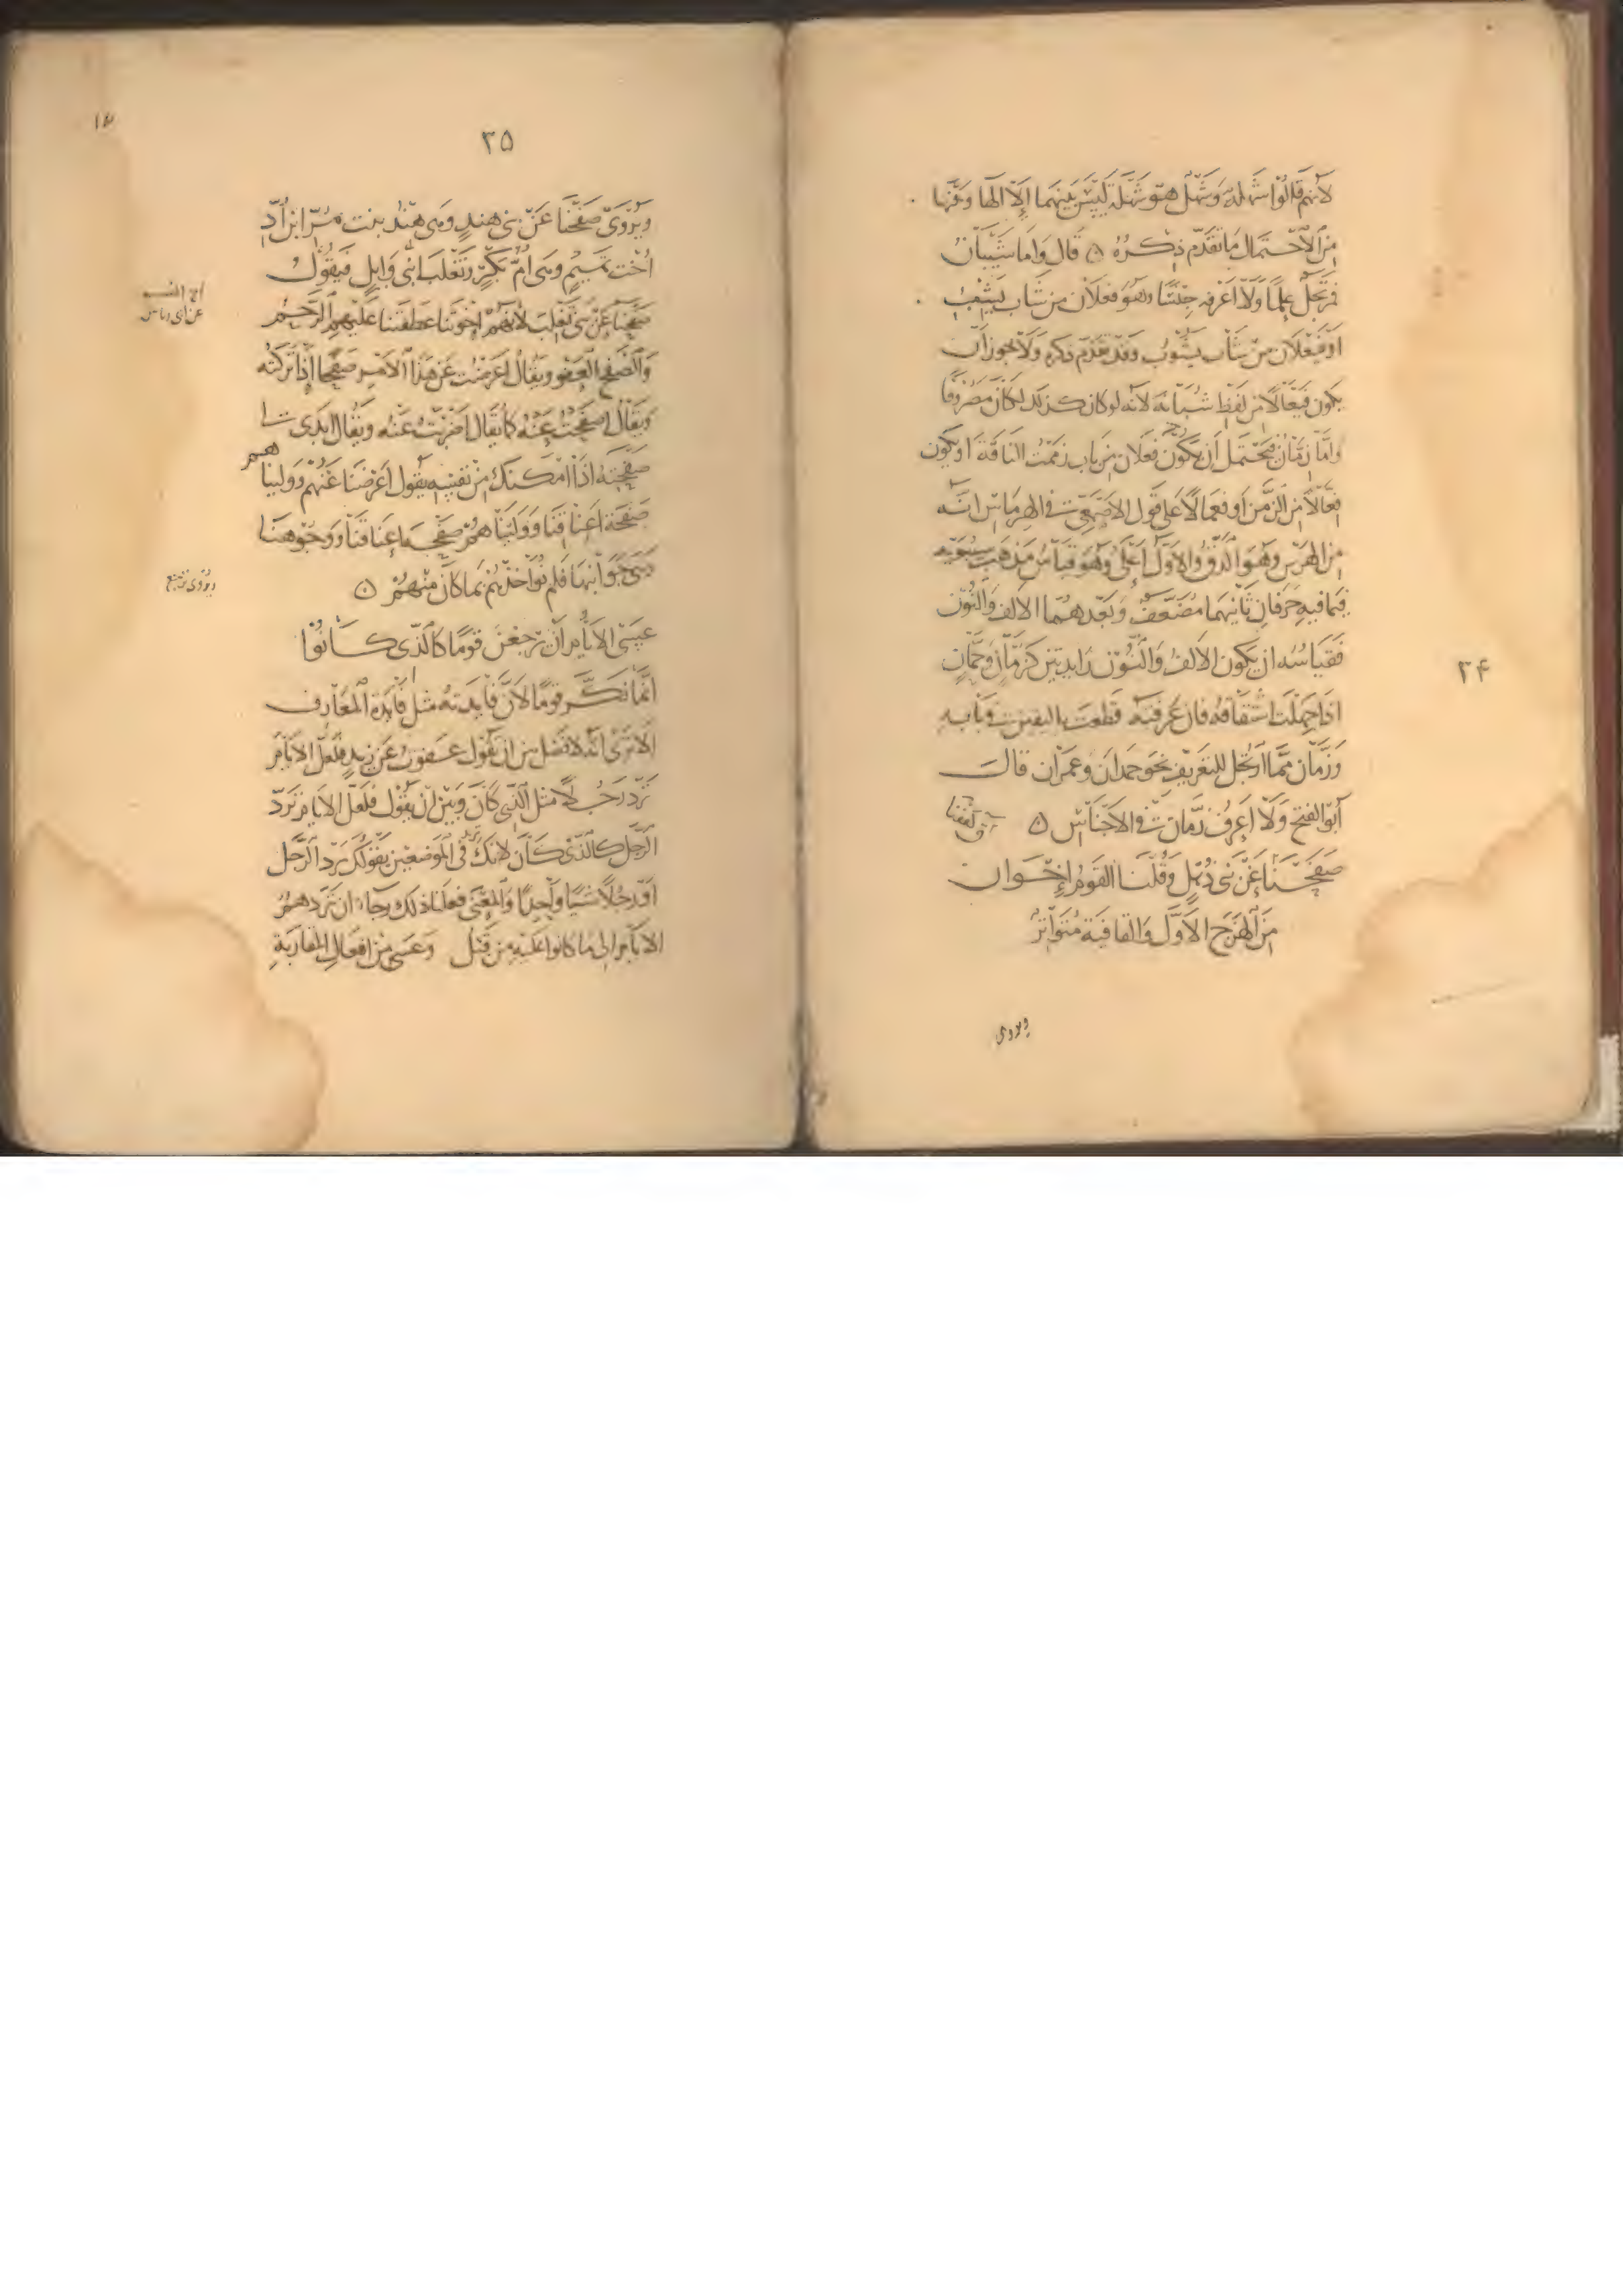 لانهم قالوا شهلة وشهل هو شهلة ليس بينهما الا الها وفيها
من الاحتمال ما تقدم ذكره ٥ قال واما شيبان
فمرتجل علما ولا اعرفه جنسا وهو فعلان من شاب يشيب
او فيعلان من شاب يشوب وقد تقدم ذكره ولا يجوز ان
يكون فيعالا من لفظ شبانه لانه لو كان كذلك لكان مصروفا
واما زمان فيحتمل ان يكون فعلان من باب زممت الناقة او يكون
فعالا من الزمن او فعمالا على قول الاصمعي في الهرماس انه
من الهرس وهو الدق والاول اعلى وهو قياس مذهب سيبويه
فيما فيه حرفان ثانيهما مضعف وبعدهما الالف والنون
فقياسه ان يكون الالف والنون زايدتين كرمان وحمان
اذا جهلت اشتقاقه فان عرفته قطعت باليقين في بابه
وزمان مما ارتجل للتعريف نحو حمدان وعمران قال
ابو الفتح ولا اعرف زمان في الاجناس ٥
صفحنا عن بني ذهل وقلنا القوم اخوان
من الهزج الاول والقافية متواتر
ويروى
٣۴
٣۵
ويروى صفحنا عن بني هند وهي هند بنت مر ابن اد
اخت تميم وهي ام بكر وتغلب ابني وايل فيقول
صفحنا عن بني تغلب لانهم اخوتنا عطفتنا عليهم الرحم
والصفح العفو ويقال اعرضت عن هذا الامر صفحا اذا تركته
ويقال اصفحت عنه كما يقال اضربت عنه ويقال ابدى
صفحته اذا امكنك من نفسه يقول اعرضنا عنهم وولينا هم
صفحة اعناقنا ووليناهم صفحة اعناقنا ووجوهنا
وهي جوانبها فلم نواخذهم بما كان منهم ٥
ويروى ترجع
عسى الايام ان يرجعن قوما كالذي كانوا
انما نكر قوما لان فايدته مثل فايدة المعارف
الا ترى انه لا فصل بين ان تقول عفوت عن زيد فلعل الايام
ترد رجلا مثل الذي كان وبين ان تقول فلعل الايام ترد
الرجل كالذي كان لانك في الموضعين بقولك ترد الرجل
او رجلا شيا واحدا والمعنى فعلنا ذلك رجاء ان تردهم
الايام الى ما كانوا عليه من قبل وعسى من افعال المقاربة